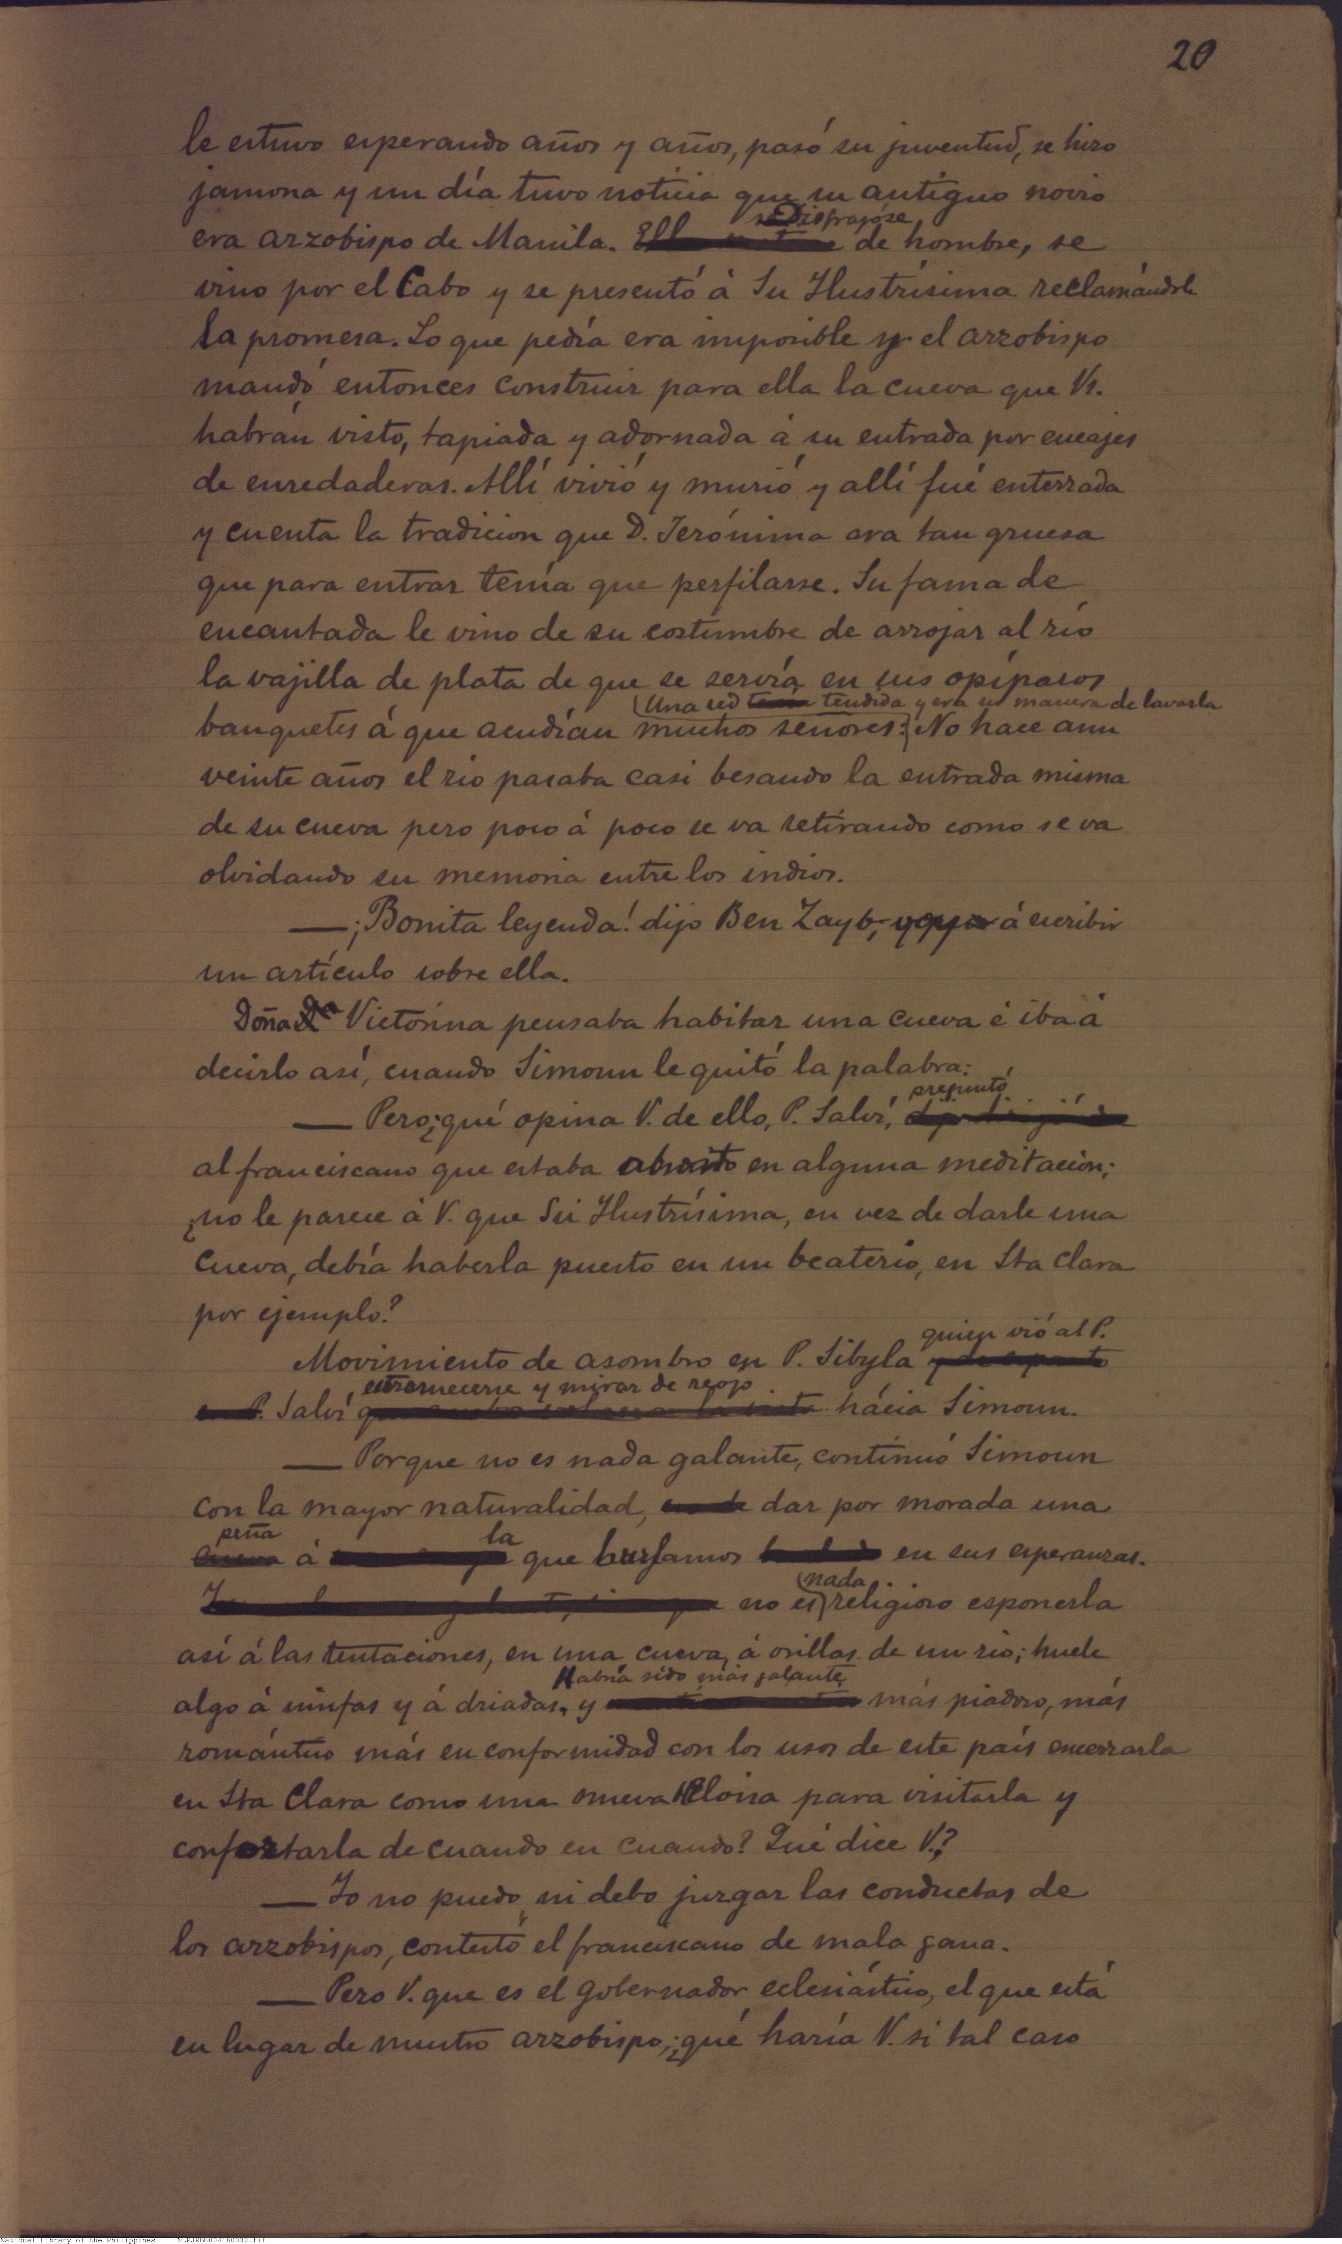 20
le estuvo esperando años y años, pasó su juventud, se hizo
jamona y un día tuvo noticia que su antiguo novio
Disfrazóse
era arzobispo de Manila. de hombre, se
vino por el Cabo y se presentó á Su Ilustrísima reclamándole
la promesa. Lo que pedía era imposible y el arzobispo
mandó entonces construir para ella la cueva que Vs.
habrán visto, tapiada y adornada á su entrada por encajes
de enredaderas. Allí vivió y murió y allí fué enterrada
y cuenta la tradicion que D. Jerónima era tan gruesa
que para entrar tenía que perfilarse. Su fama de
encantada le vino de su costumbre de arrojar al río
la vajilla de plata de que se servía en sus opíparos
Una red tendida y era su manera de lavarla
banquetes á que acudían muchos señores: No hace aun
veinte años el rio pasaba casi besando la entrada misma
de su cueva pero poco á poco se va retirando como se va
olvidando su memoria entre los indios.
—¡Bonita leyenda! dijo Ben Zayb, á escribir
un artículo sobre ella.
Doña Victorina pensaba habitar una cueva é iba á
decirlo así, cuando Simoun le quitó la palabra:
preguntó
— Pero ¿qué opina V. de ello, P. Salví,
al franciscano que estaba absorto en alguna meditación;
¿no le parece á V. que Su Ilustrísima, en vez de darle una
cueva, debía haberla puesto en un beaterio, en Sta Clara
por ejemplo?
quien vió al P.
Movimiento de asombro en P. Sibyla
estremecerse y mirar de reojo
Salví hácia Simoun.
— Porque no es nada galante, continuó Simoun
con la mayor naturalidad, dar por morada una
peña la
á que burlamos en sus esperanzas.
nada
no es religioso esponerla
así á las tentaciones, en una cueva, á orillas de un rio; huele
Habría sido más galante,
algo á ninfas y á driadas. y más piadoso, más
romántico más en conformidad con los usos de este país encerrarla
en Sta Clara como una nueva Eloisa para visitarla y
confortarla de cuando en cuando? Qué dice V.?
— Yo no puedo ni debo juzgar las conductas de
los arzobispos, contestó el franciscano de mala gana.
— Pero V. que es el gobernador eclesiástico, el que está
en lugar de nuestro arzobispo, ¿qué haría V. si tal caso